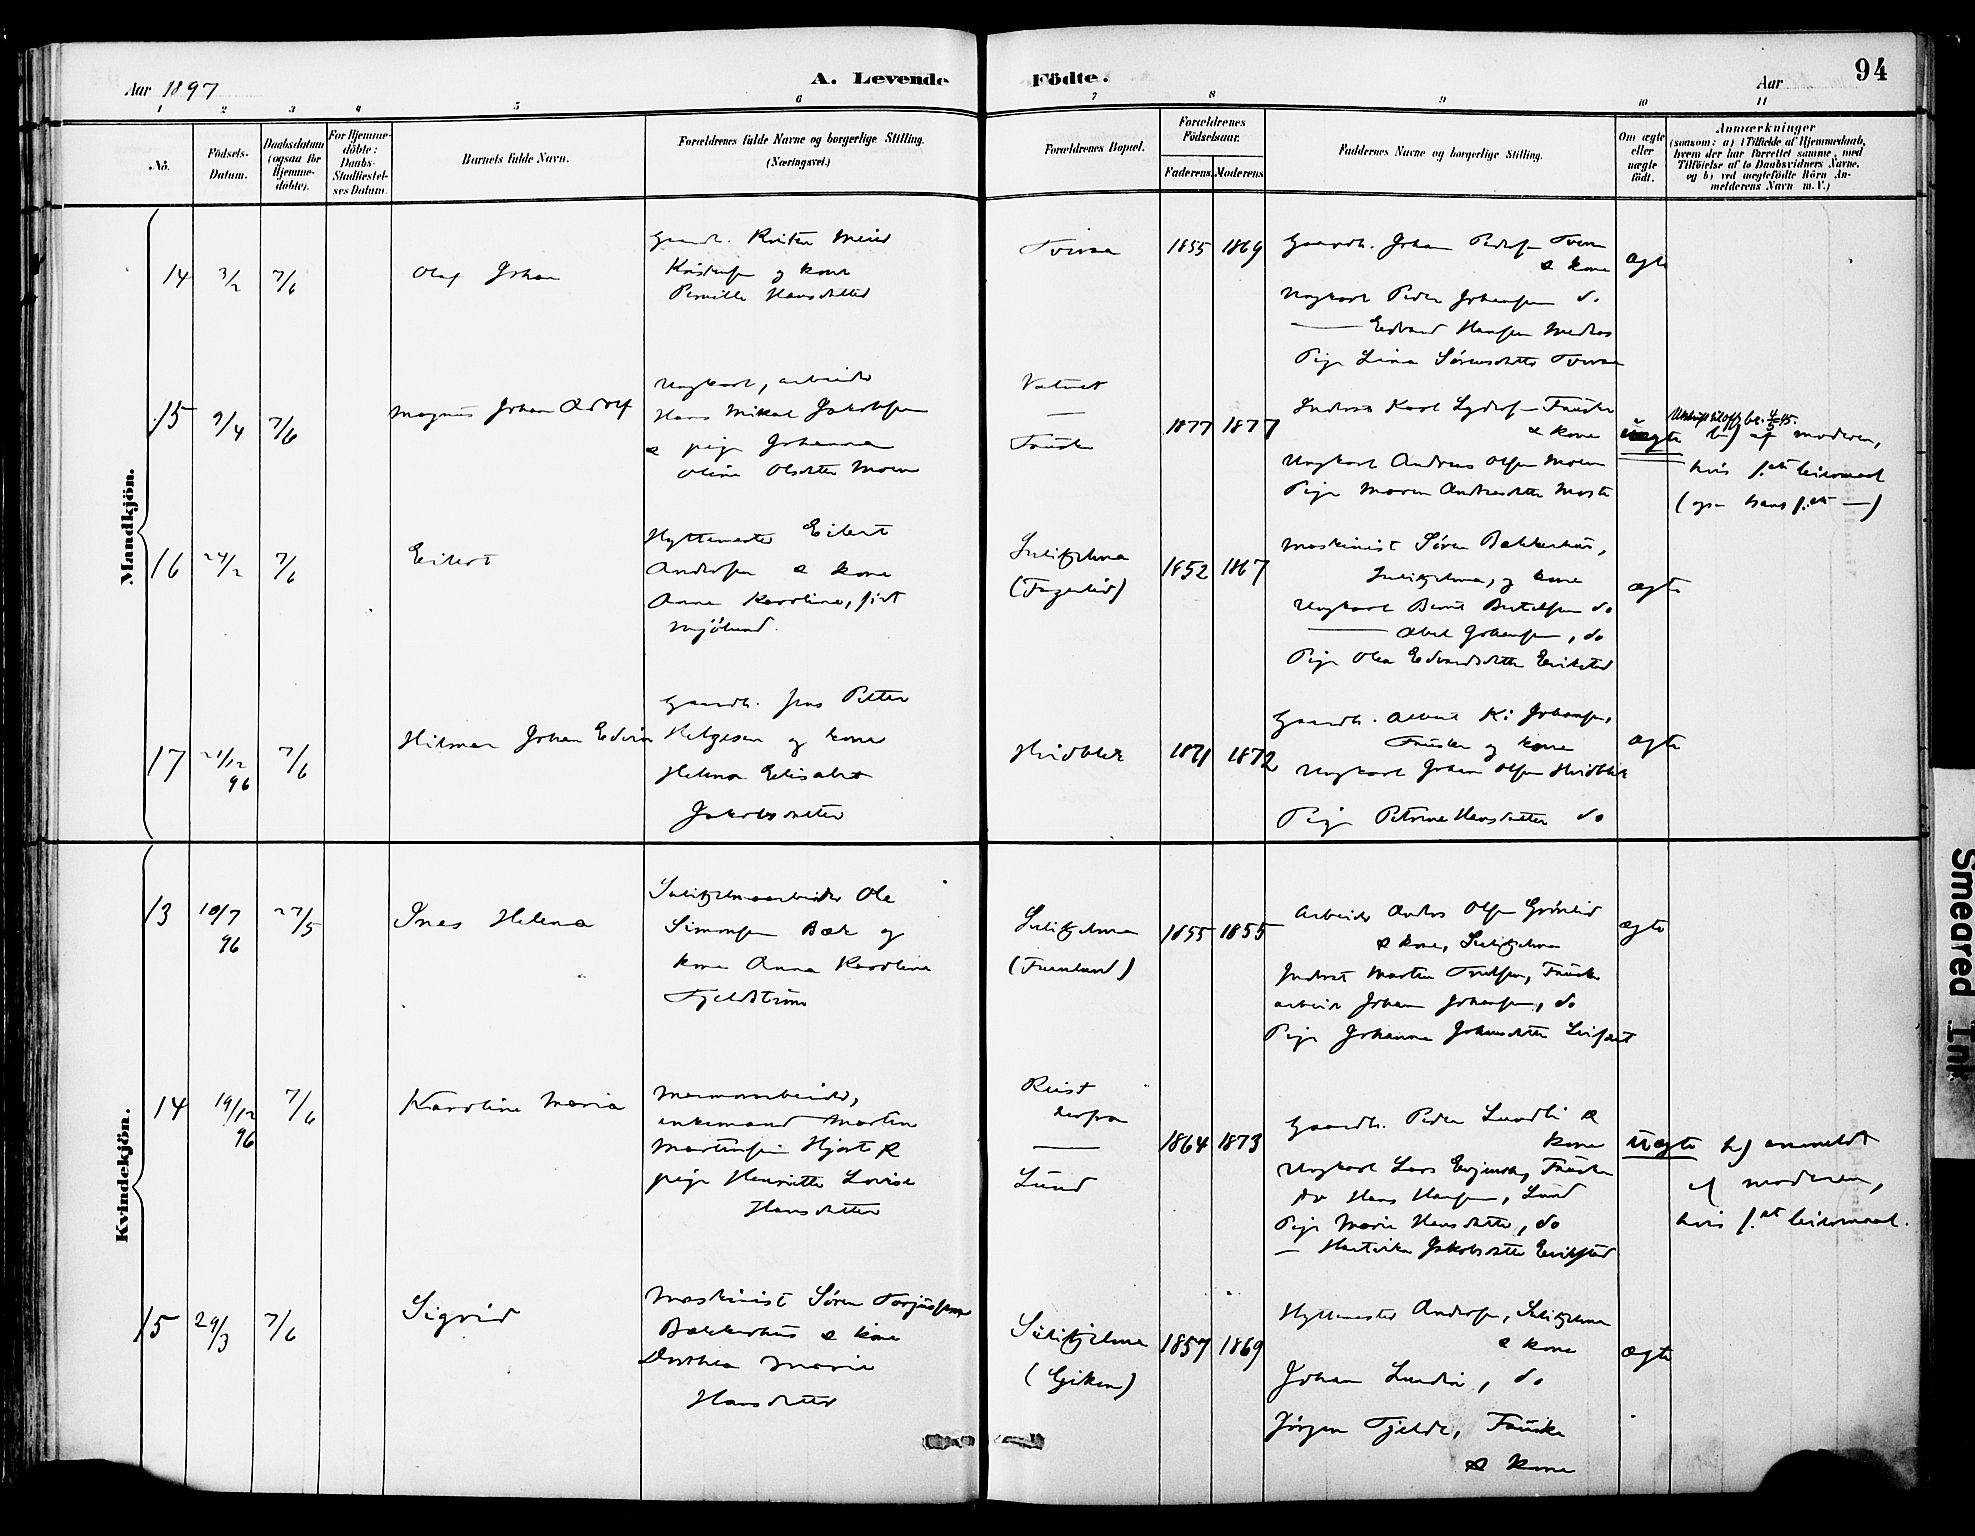 94
Aar 1897
A. Levende Födte.
Aar
1 2 3 4 5 6 7 8 9 10 11
No.
Födsels-Datum.
Daabsdatum (ogsaa for Hjemme-döbte).
For Hjemme-döbte: Daabs-Stadfæstel-ses Datum.
Barnets fulde Navn.
Forældrenes fulde Navne og borgerlige Stilling.
(Næringsvei.)
Forældrenes Bopæl.
Forældrenes Födselsaar.
Faderens. Moderens.
Faddernes Navne og borgerlige Stilling.
Om ægte eller uægte födt.
Anmærkninger
(saasom: a) i Tilfælde af Hjemmedaab,
hvem der har forrettet samme, med
Tilföielse af to Daabsvidners Navne,
og b) ved uægtefödte Börn An-
melderens Navn m. V.)
Mandkjön.
14 3/2 7/6 Olaf Johan
Gaardb. Meier
Kristensen og kone
Pernille Hansdatter
Tveraa
1855 1869
Gaardb. Johan Pedersen Tveraa
& kone
Ungkarl Peder Johansen do
— Edvard Hansen
Pige Lina Sörensdatter Tveraa
ægte
15 9/4 7/6 Magnus Johan Adolf
Ungkarl, arbeider
Hans Mikal Jakobsen
& pige Johanna
Oline Olsdatter Moen
Vatnet
—
Fauske
1877 1877
Inderst Karl Fauske
& kone
Ungkarl Andreas Olsen Moen
Pige Maren Andreasdatter
uægte
b) af moderen,
hvis 1.ste leiermaal
(ogsaa hans 1.ste —)
16 24/2 7/6 Eilert
Hyttemester Eilert
Andersen & kone
Anna Karoline, födt
Mjölund.
Sulitjelma
(Fagerlid)
1852 1867
Maskinist Sören Bakkehus,
Sulitjelma, og kone
Ungkarl Bertelsen do
— Johansen, do
Pige Olea Edvardsdatter Erikstad
ægte
17 21/12 96 7/6 Hilmar Johan Edvin
Gaardb. Jens Petter
Helgesen og kone
Helena Elisabet
Jakobsdatter
Hvidblik
1871 1872
Gaardb. Albert Kr. Johansen,
Fauske og kone
Ungkarl Johan Olsen Hvidblik
Pige Petrine Hansdatter do
ægte
Kvindekjön.
13 10/7 96 27/5 Ines Helena
Sulitjelmaarbeider Ole
Simonsen Bæk og
kone Anna Karoline
Fjeldström
Sulitjelma
(Furulund)
1855 1855
Arbeider Anders Olsen Grönlid
& kone, Sulitjelma
Inderst Martin, Fauske
arbeider Johan Johansen, do
Pige Johanna Johansdatter Leifset
ægte
14 19/12 96 7/6 Karoline Maria
enkemand Martin
Martinsen Hjort &
pige Henriette Lovise
Hansdatter
Reist
herfra
—
Lund
1864 1873
Gaardb. Peder Lundli &
kone
Ungkarl Lars Evjenth, Fauske
do Hans Hansen, Lund
Pige Marie Hansdatter, do
— Jakobsdatter Erikstad
uægte
b) anmeldt
af moderen,
hvis 1.ste leiermaal.
15 29/3 7/6 Sigrid
Maskinist Sören Torjussen
Bakkehus & kone
Dorthea Marie
Hansdatter
Sulitjelma
(Giken)
1857 1869
Hyttemester Andersen, Sulitjelma
& kone
Johan Lundin, do
Jörgen Fjelde, Fauske
& kone
ægte
Smeared Ink